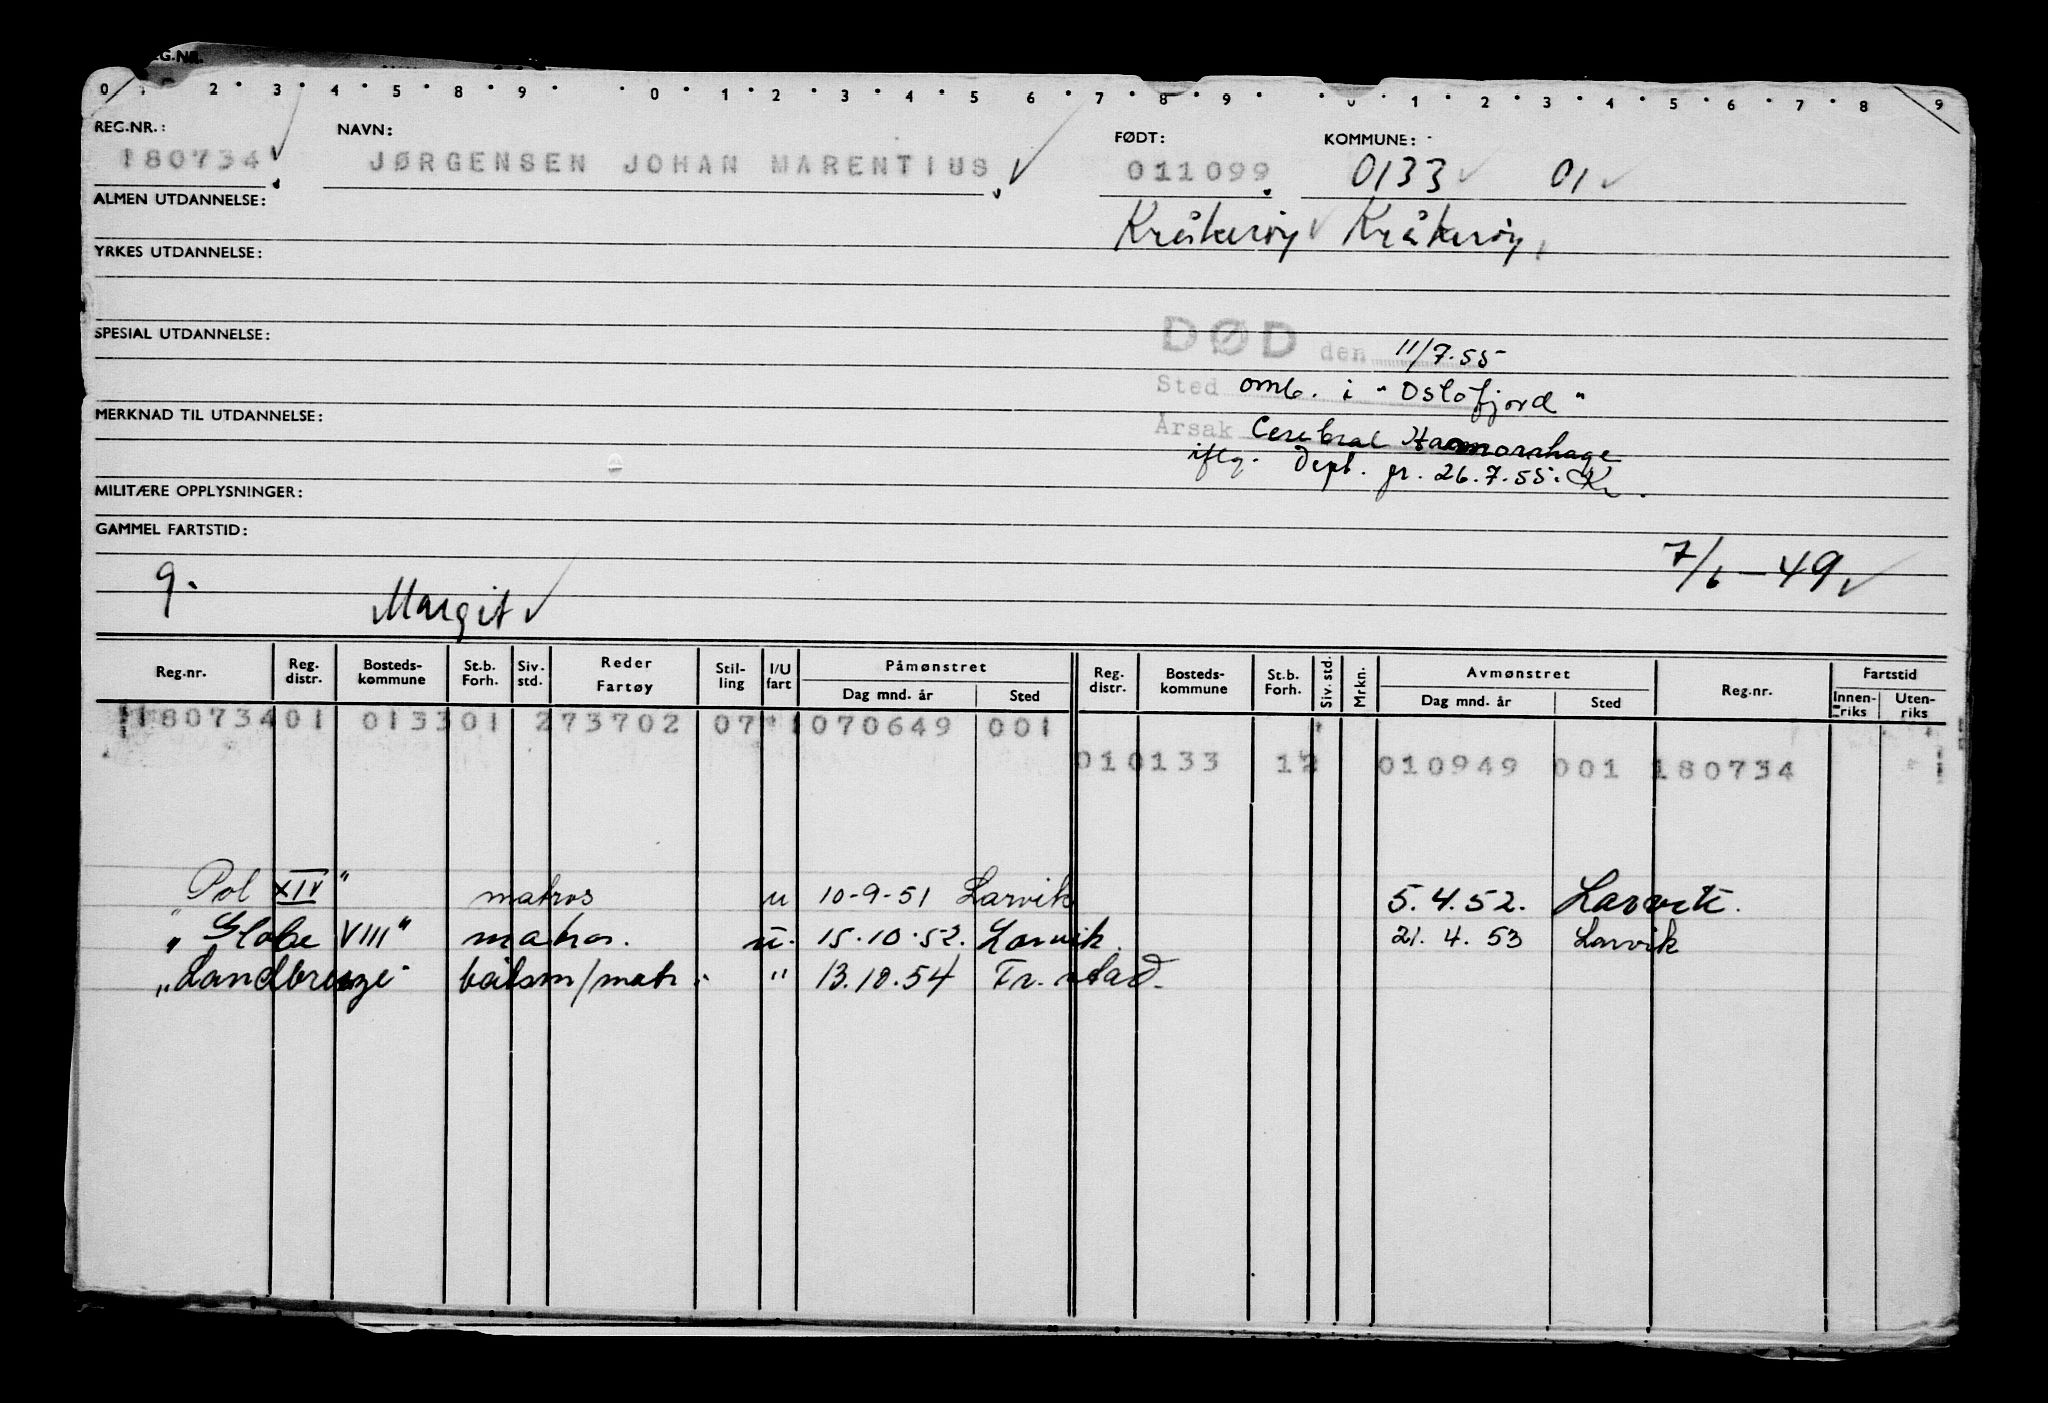 EG.NR.
0 1 2 3 4 5 8 9 0 1 2 3 4 5 6 7 8 9 0 1 2 3 4 5 6 7 8 9
REG.NR.: NAVN: FØDT: KOMMUNE:
180734 JØRGENSEN JOHAN MARENTIUS 011099 0133 01
ALMEN UTDANNELSE: Kråkerøy Kråkerøy
YRKES UTDANNELSE:
SPESIAL UTDANNELSE: DØD den 11/7.55
Sted omb. i "Oslofjord"
MERKNAD TIL UTDANNELSE: Årsak Cerebral Haemorrhage
iflg. Dept. pr. 26.7.55. Kr.
MILITÆRE OPPLYSNINGER:
GAMMEL FARTSTID:
9. Margit 7/6-49
Reg.nr. Reg. distr. Bosteds-kommune St.b. Forh. Siv. std. Reder Fartøy Stil-ling I/U fart Påmønstret Dag mnd. år Sted Reg. distr. Bosteds-kommune St.b. Forh. Siv. std. Mrkn. Avmønstret Dag mnd. år Sted Reg.nr. Fartstid Innen-riks Uten-riks
180734 01 0133 01 2 73702 07 1 070649 001
01 0133 12 010949 001 180734
"Pol XIV" matros u 10-9-51 Larvik 5.4.52. Larvik.
"Globe VIII" matros. u. 15.10.52. Larvik. 21.4.53 Larvik
"Landbreeze" båtsm/matr. " 13.10.54 Fr.stad.